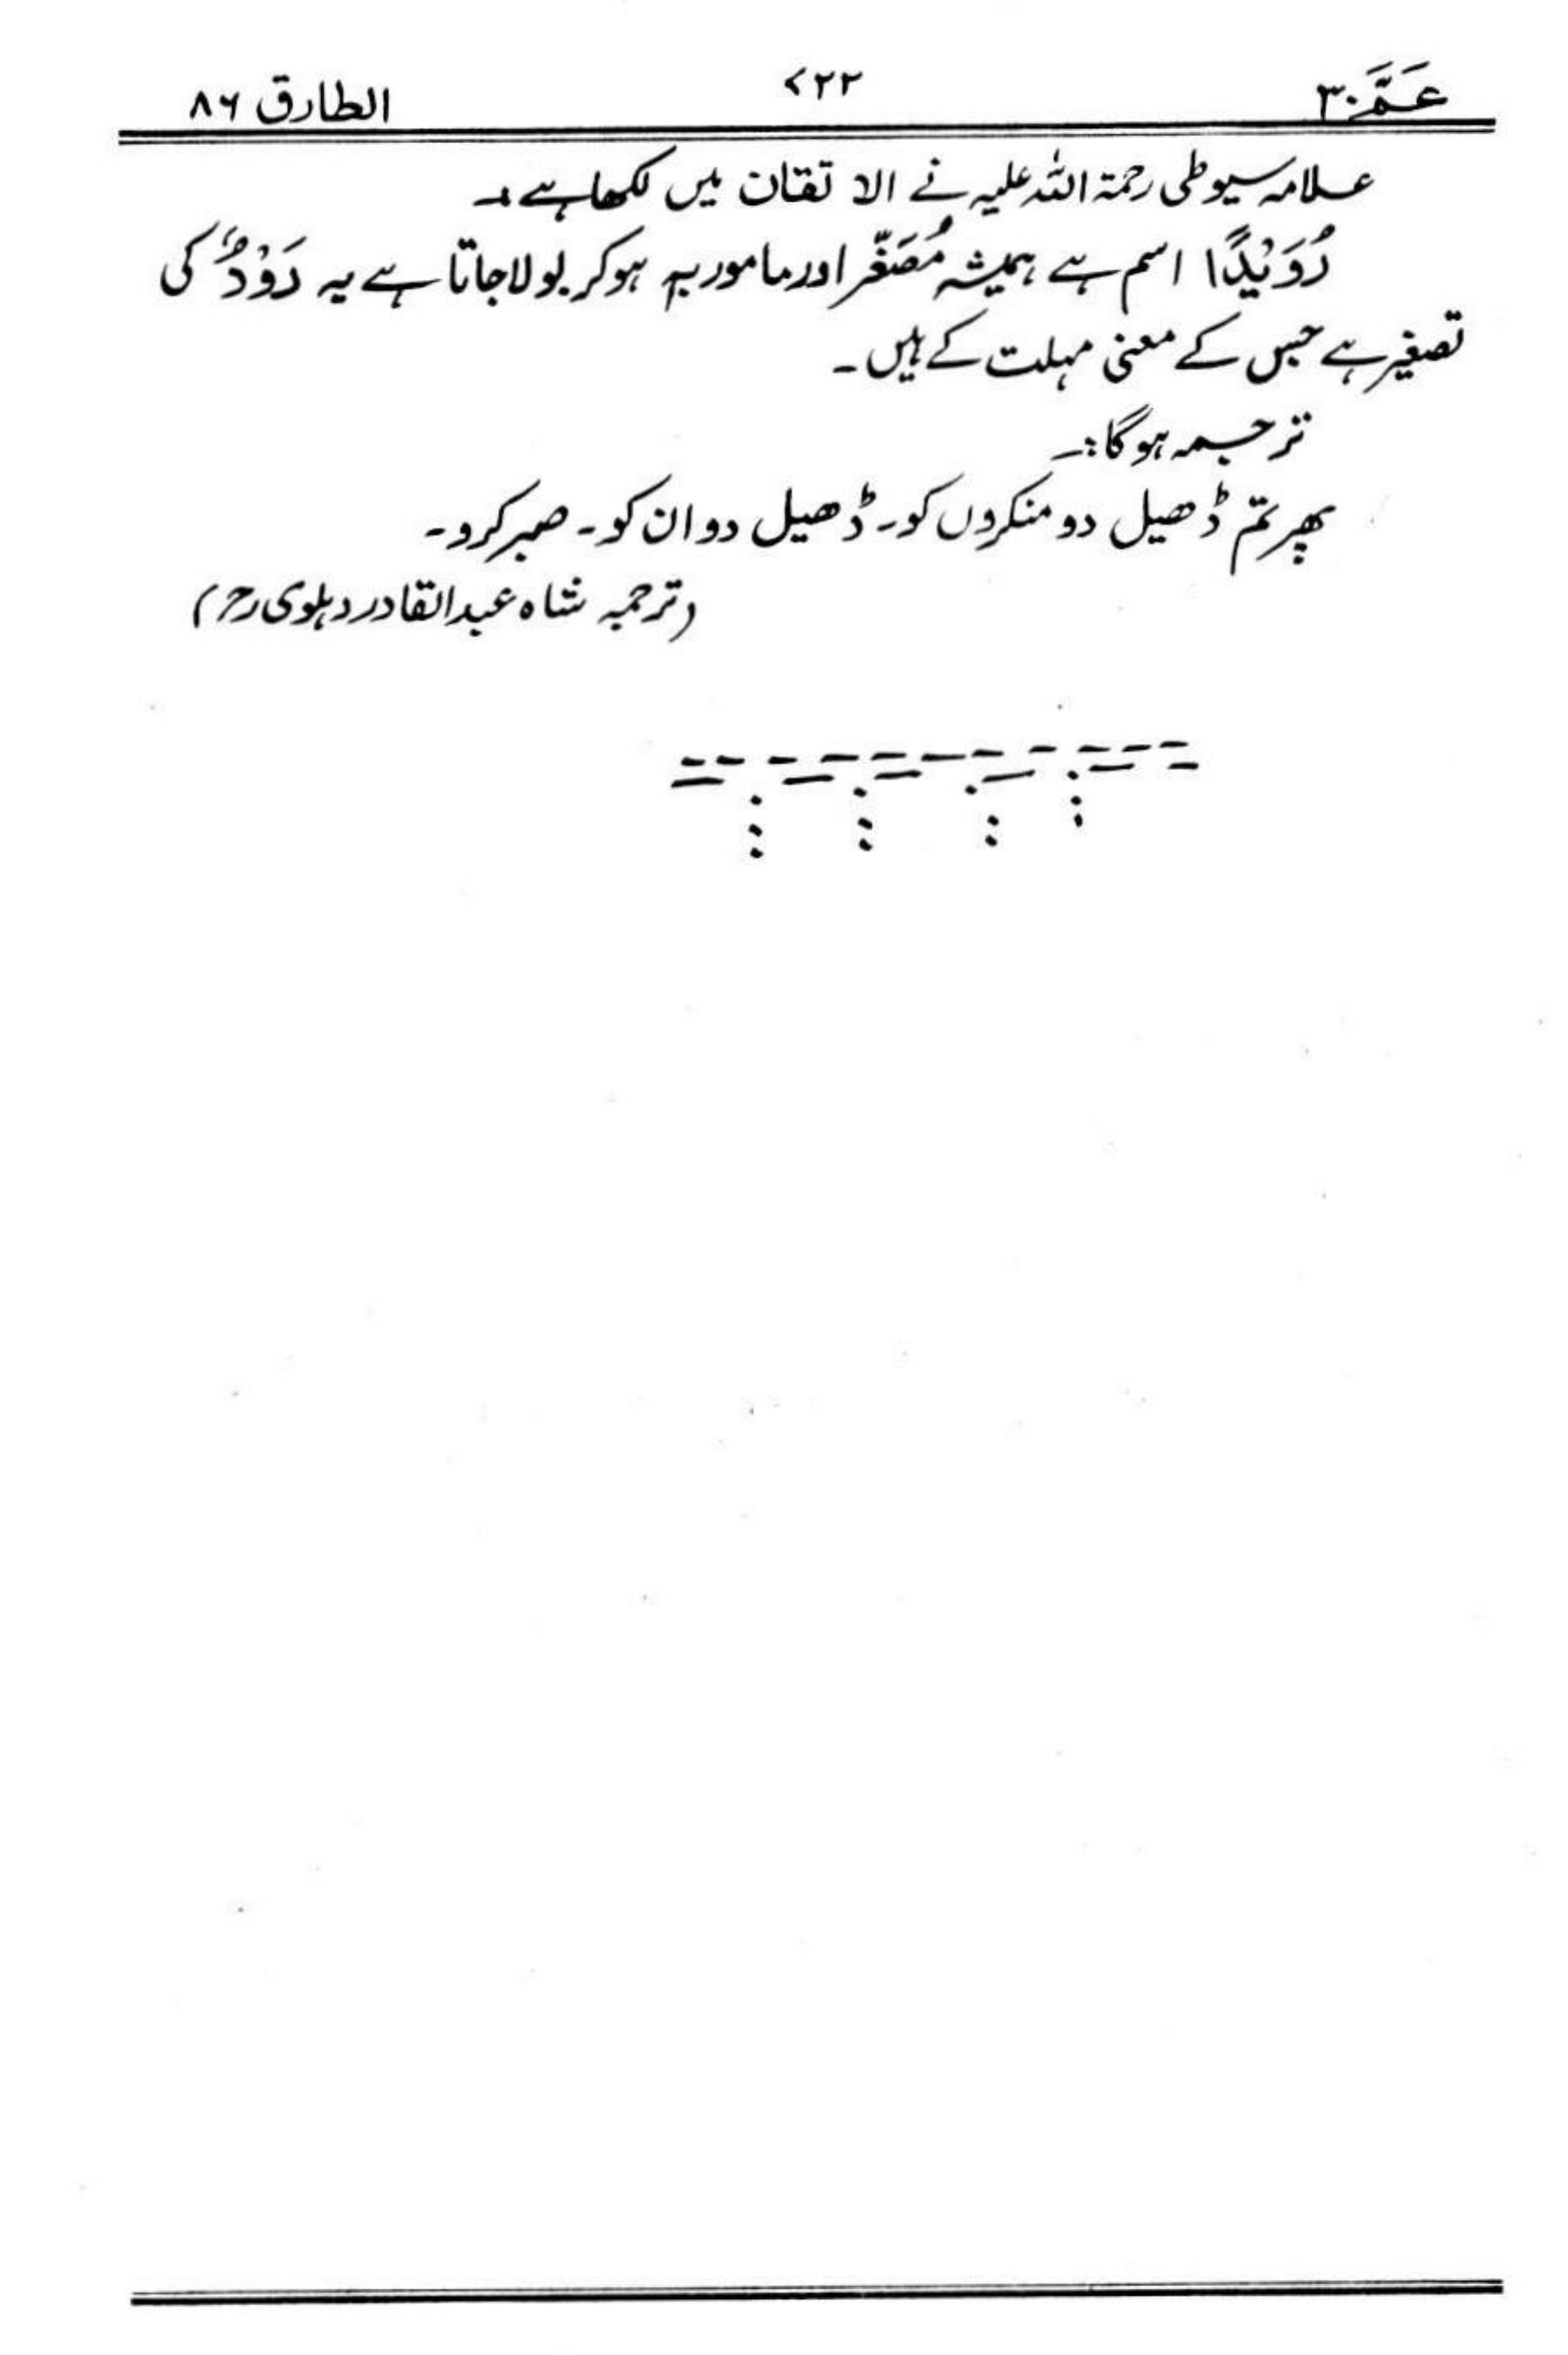 عَمَّ ۳۰ ۷۲۲ الطارق ۸۶
علامہ سیوطی رحمۃ اللہ علیہ نے الاتقان میں لکھا ہے :۔
رُوَیْدًا اسم ہے ہمیشہ مُصَغَّر اور مامور بہٖ ہو کر بولا جاتا ہے یہ رَوْدٌ کی
تصغیر ہے جس کے معنی مہلت کے ہیں ۔
ترجمہ ہوگا :۔
پھر تم ڈھیل دو منکروں کو۔ ڈھیل دو ان کو۔ صبر کرو۔
(ترجمہ شاہ عبدالقادر دہلوی رح)